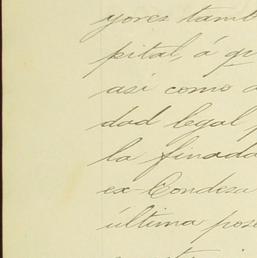 yores tamb
pital, á qu
así como a
dad legal p
la finada
ex-Condesa
última pose